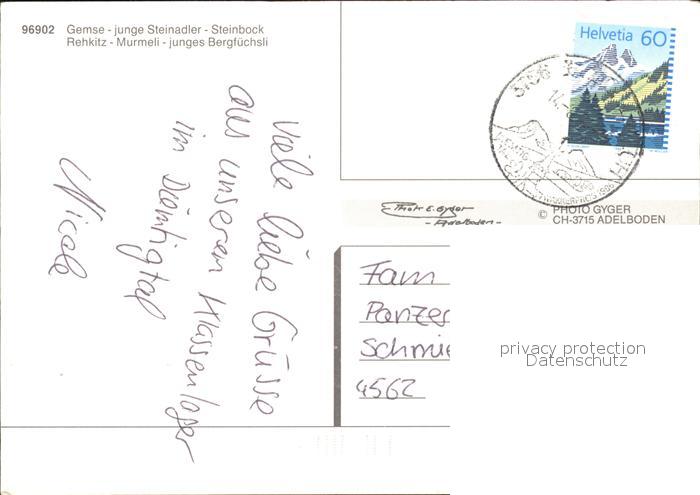 96902 Gemse - junge Steinadler - Steinbock
Rehkitz - Murmeli - junges Bergfüchsli
Viele liebe Grüsse
aus unserem Klassenlager
im Diemtigtal
Nicole
Helvetia 60
3756
Photo E. Gyger
- Adelboden -
© PHOTO GYGER
CH-3715 ADELBODEN
Fam
Panze
Schmi
4562
privacy protection
Datenschutz